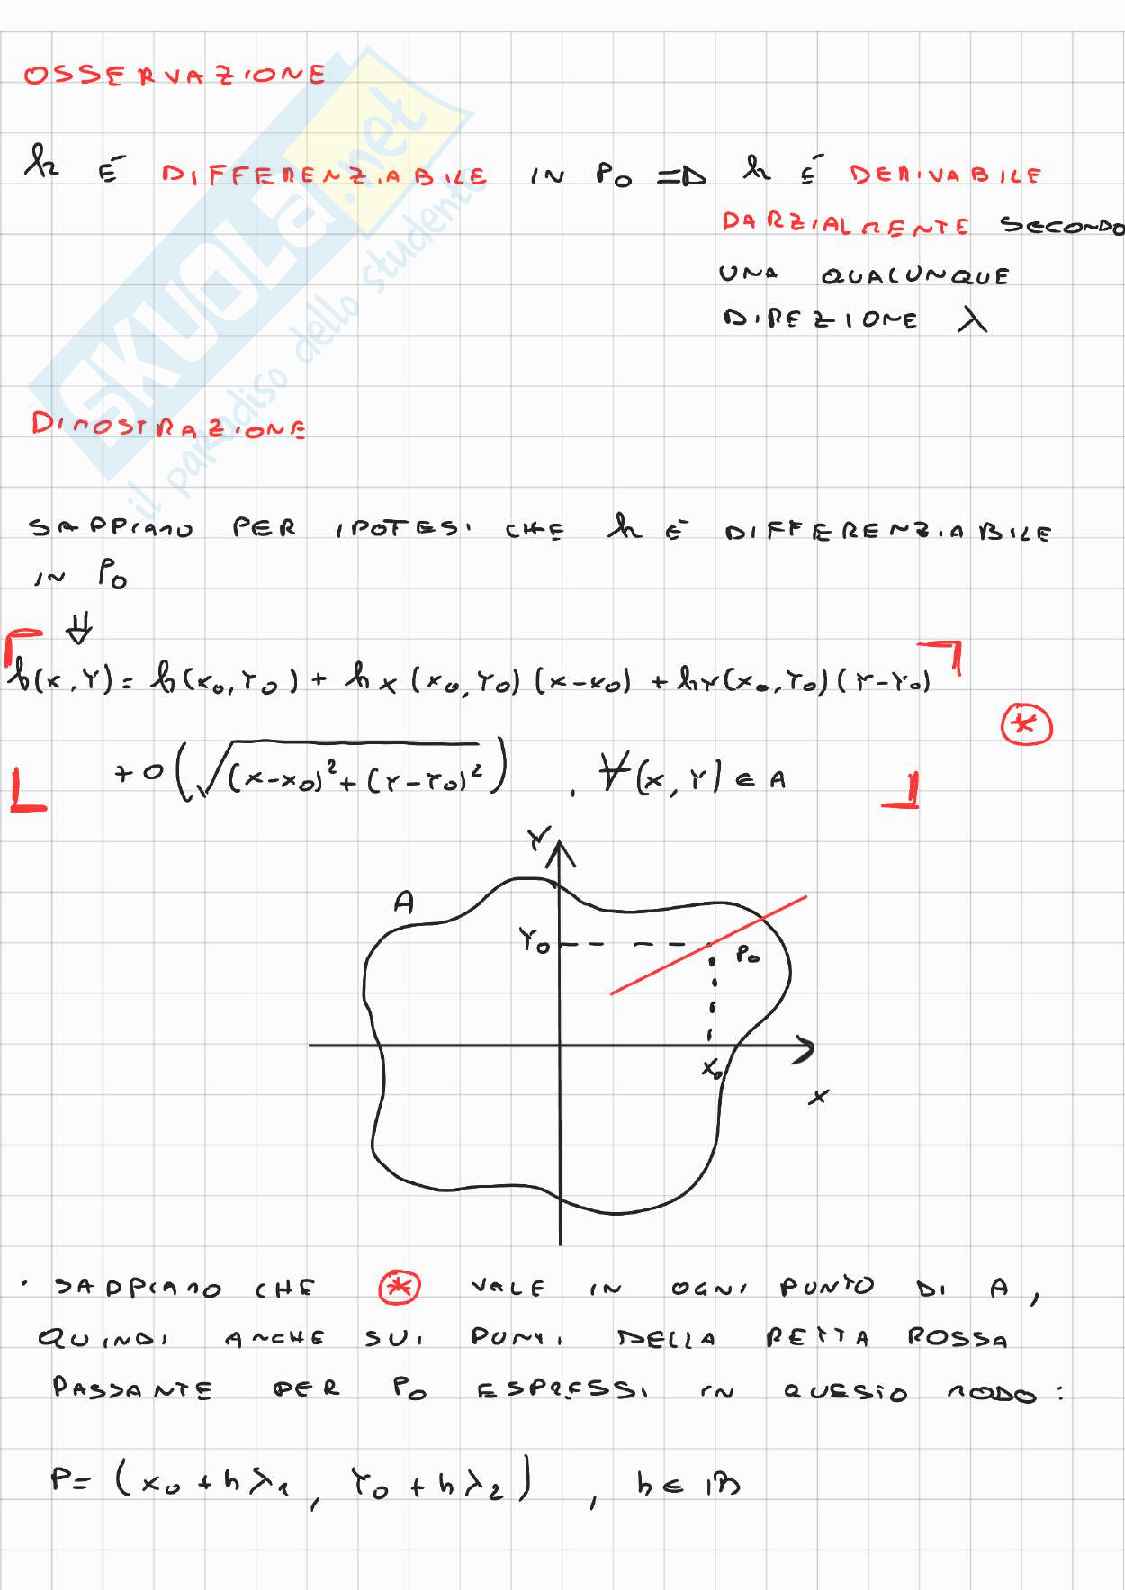 OSSERVAZIONE
h È DIFFERENZIABILE IN P0 => h È DERIVABILE
PARZIALMENTE SECONDO
UNA QUALUNQUE
DIREZIONE λ
DIMOSTRAZIONE
SAPPIAMO PER IPOTESI CHE h È DIFFERENZIABILE
IN P0
⇓
h(x,Y) = h(x0,Y0) + hx(x0,Y0)(x-x0) + hY(x0,Y0)(Y-Y0)
*
+ o(√(x-x0)²+(Y-Y0)²) , ∀(x,Y) ∈ A
Y
A
Y0
P0
x0
x
· SAPPIAMO CHE * VALE IN OGNI PUNTO DI A,
QUINDI ANCHE SUI PUNTI DELLA RETTA ROSSA
PASSANTE PER P0 ESPRESSI IN QUESTO MODO:
P = (x0 + hλ1, Y0 + hλ2) , h ∈ ℝ
SKUOLA.net
il paradiso dello studente